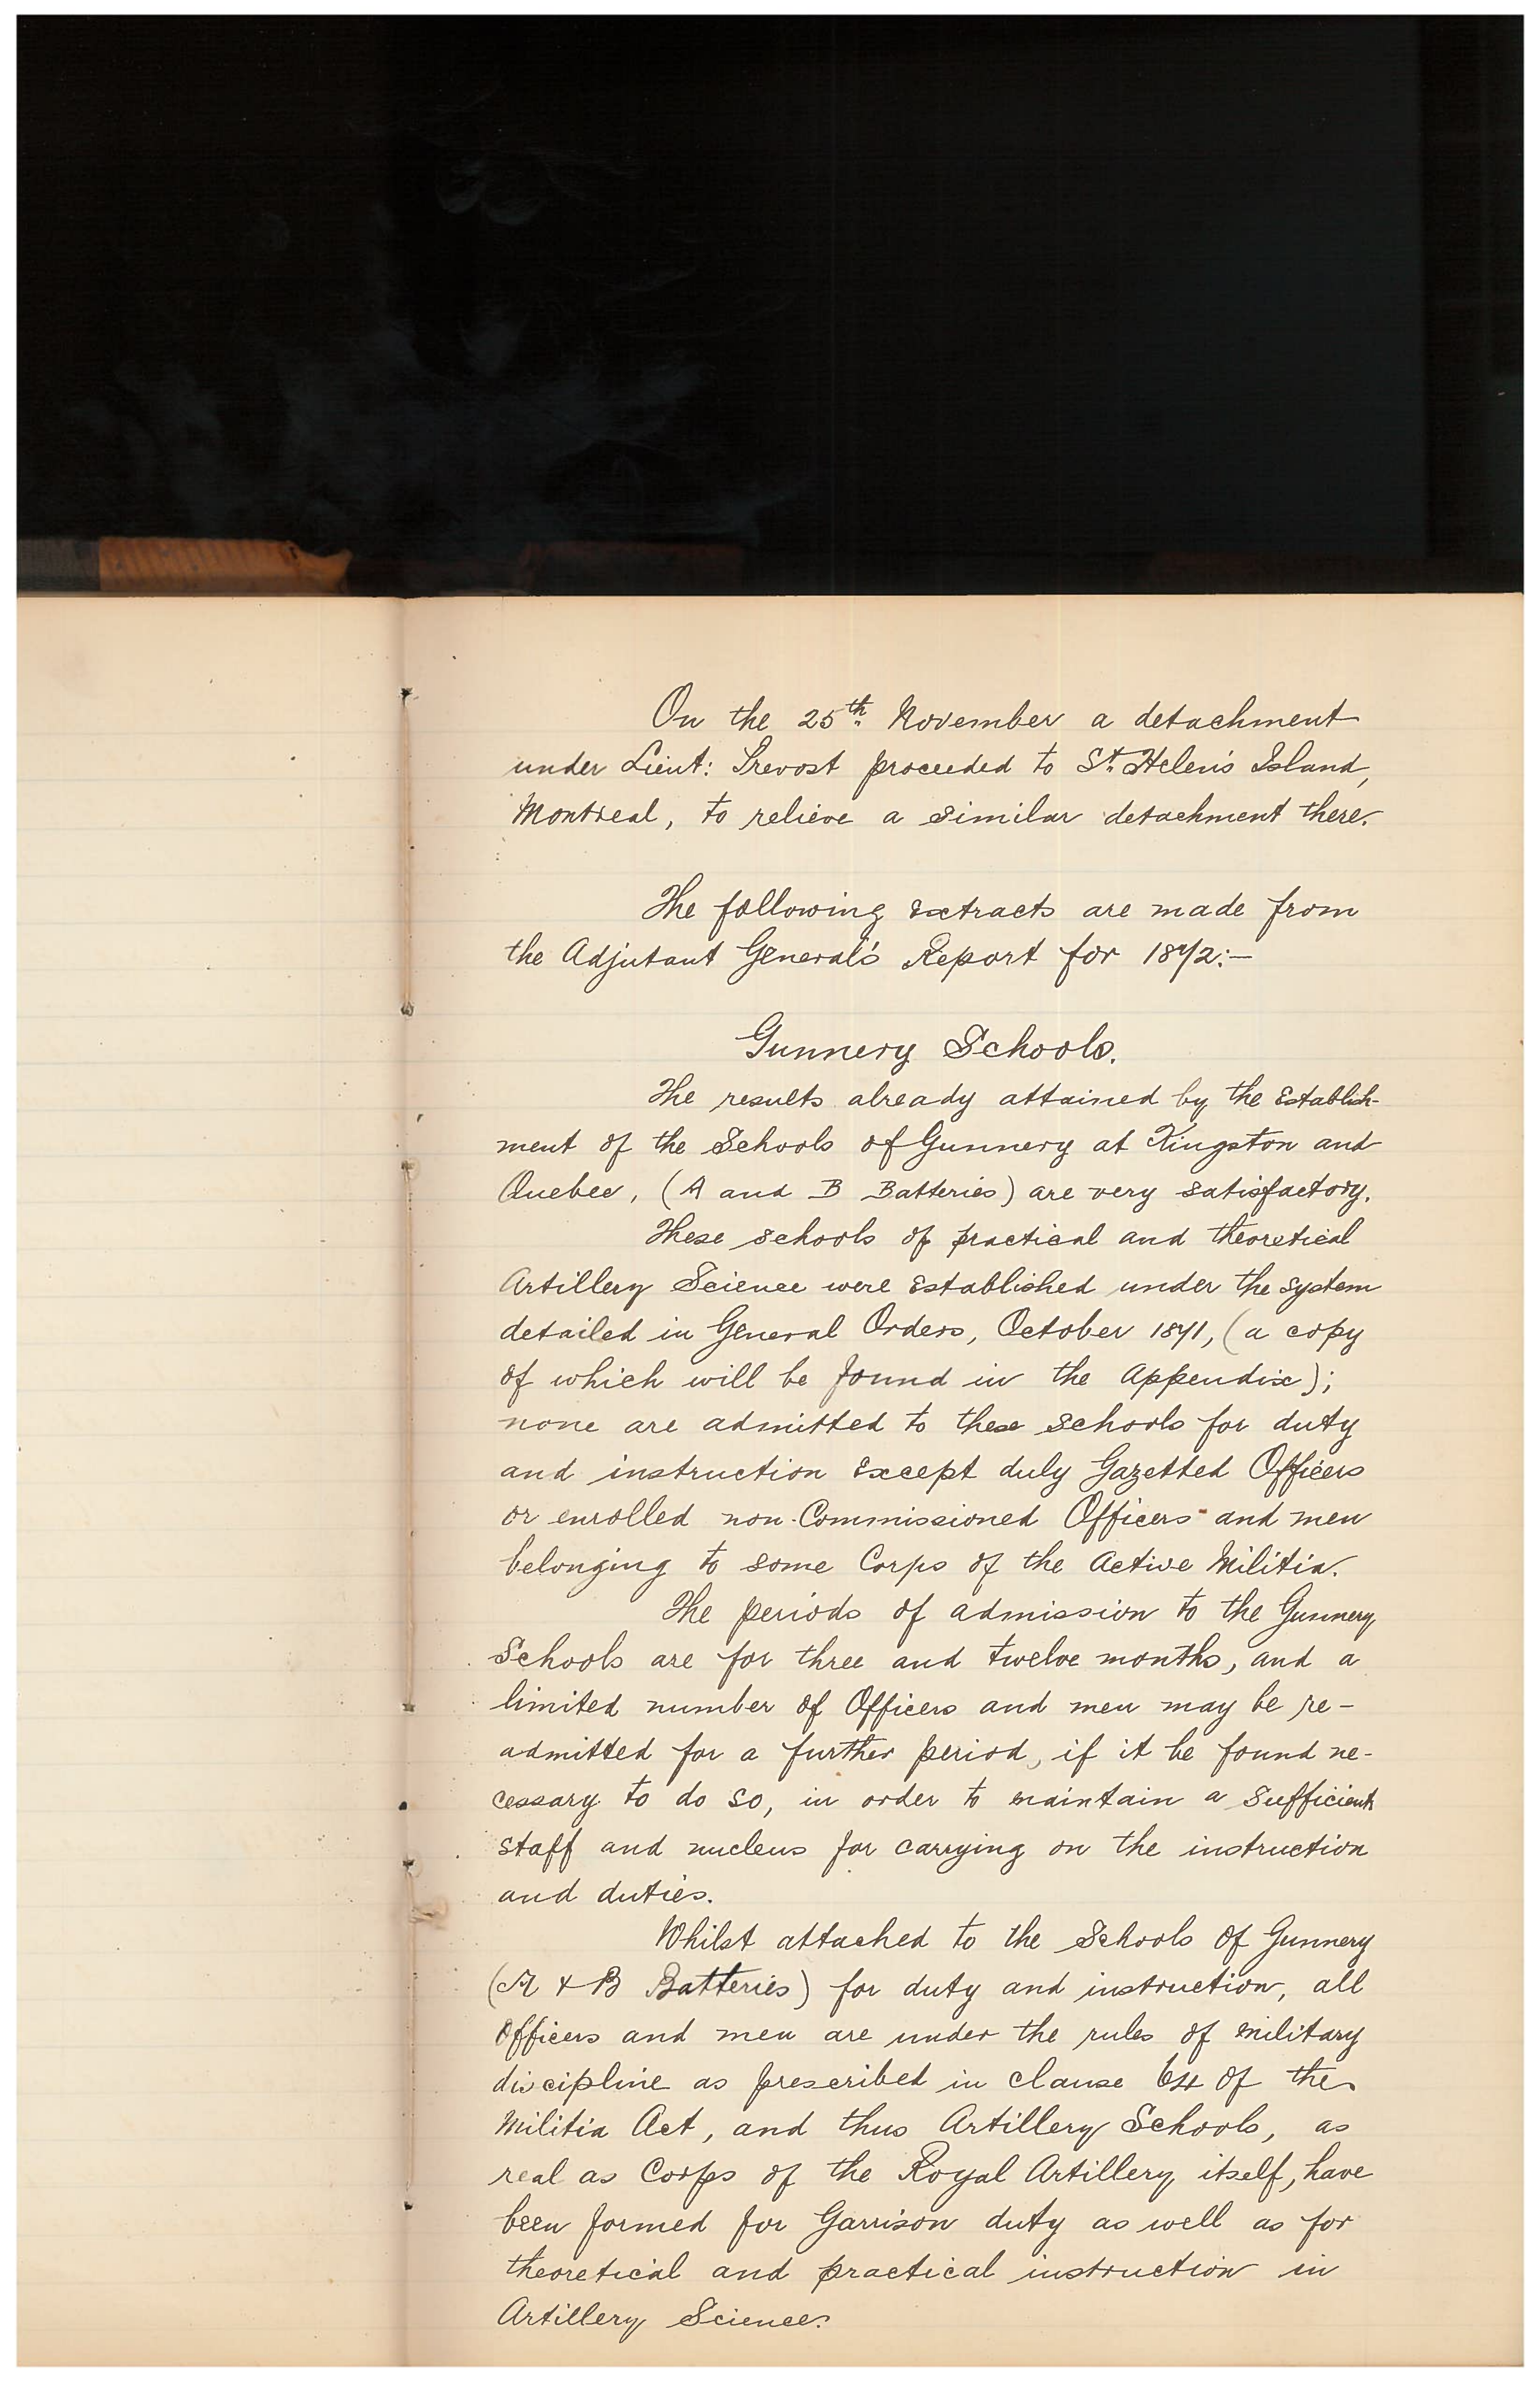 On the 25th. November a detachment
under Lieut: Prevost proceeded to St. Helen's Island,
Montreal, to relieve a similar detachment there.
The following extracts are made from
the Adjutant General's Report for 1872:—
Gunnery Schools.
The results already attained by the Establish-
ment of the Schools of Gunnery at Kingston and
Quebec, (A and B Batteries) are very satisfactory.
These schools of practical and theoretical
Artillery Science were Established under the system
detailed in General Orders, October 1871, (a copy
of which will be found in the Appendix);
none are admitted to these schools for duty
and instruction Except duly Gazetted Officers
or enrolled non-Commissioned Officers and men
belonging to some Corps of the Active Militia.
The periods of admission to the Gunnery
Schools are for three and twelve months, and a
limited number of Officers and men may be re-
admitted for a further period, if it be found ne-
cessary to do so, in order to maintain a sufficient
staff and nucleus for carrying on the instruction
and duties.
Whilst attached to the Schools of Gunnery
(A & B Batteries) for duty and instruction, all
Officers and men are under the rules of military
discipline as prescribed in clause 64 of the
Militia Act, and thus Artillery Schools, as
real as Corps of the Royal Artillery itself, have
been formed for Garrison duty as well as for
theoretical and practical instruction in
Artillery Science.